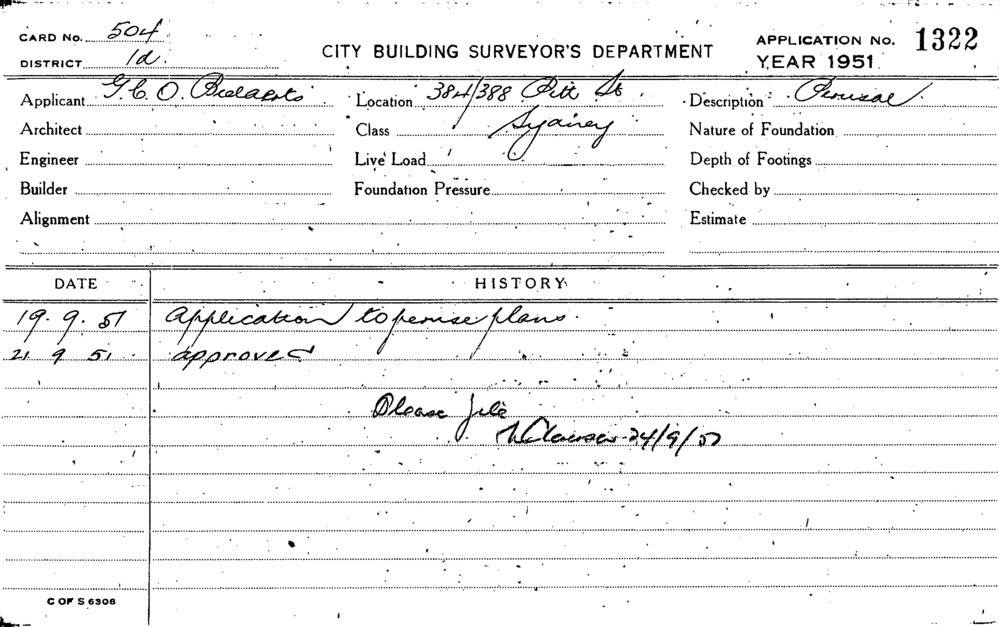 CARD No. 504
DISTRICT 1d.
CITY BUILDING SURVEYOR'S DEPARTMENT
APPLICATION No. 1322
YEAR 1951
Applicant G.C.O.
Location 384/388 Pitt St
Description Perusal
Architect
Class Sydney
Nature of Foundation
Engineer
Live Load
Depth of Footings
Builder
Foundation Pressure
Checked by
Alignment
Estimate
DATE HISTORY
19.9.51 Application to peruse plans.
21 9 51 approved
Please file
24/9/51
C OF S 6306